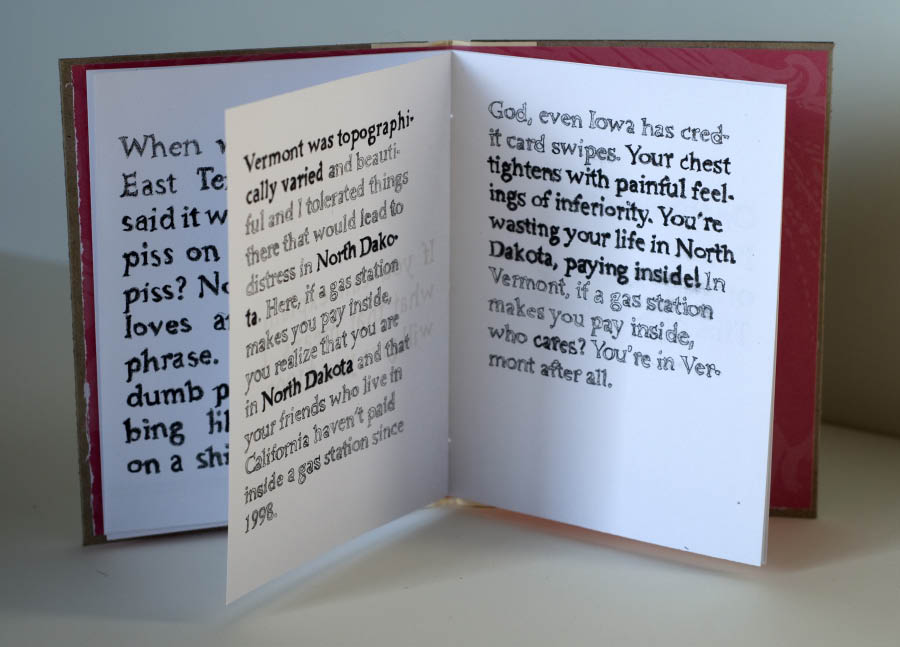 When
East
said it
piss on
piss?
loves
phrase.
dumb
bing
on a
Vermont was topographi-
cally varied and beauti-
ful and I tolerated things
there that would lead to
distress in North Dako-
ta. Here, if a gas station
makes you pay inside,
you realize that you are
in North Dakota and that
your friends who live in
California haven't paid
inside a gas station since
1998.
God, even Iowa has cred-
it card swipes. Your chest
tightens with painful feel-
ings of inferiority. You're
wasting your life in North
Dakota, paying inside! In
Vermont, if a gas station
makes you pay inside,
who cares? You're in Ver-
mont after all.